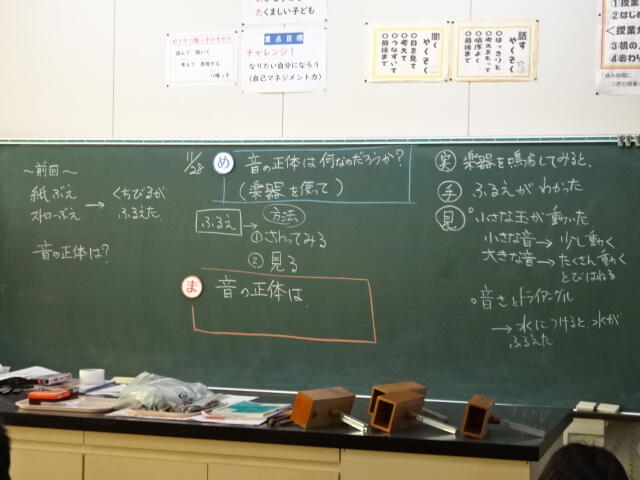 たくましい子ども
めざす八幡っ子のすがた
読んで 聴いて
考えて 表現する
八幡っ子
重点目標
チャレンジ!
なりたい自分になろう
(自己マネジメント力)
聞く
やくそく
◎目を見て
◎考えて
◎うなずいて
◎最後まで
話す
やくそく
◎はっきりと
◎考えをもって
◎順序よく
◎最後まで
①授業
②はじめ
<授業
③机の
④おわり
(休み時間に
つぎの授業
~前回~
紙ぶえ
ストローぶえ
→ くちびるが
ふるえた
音の正体は?
11/28
め 音の正体は何なのだろうか?
(楽器を使って)
ふるえ → 方法
①さわってみる
②見る
ま 音の正体は
実 楽器を鳴らしてみると、
手 ふるえがわかった
見 °小さな玉が動いた
小さな音→少し動く
大きな音→たくさん動く
とびはねる
°音さとトライアングル
→水につけると、水が
ふるえた